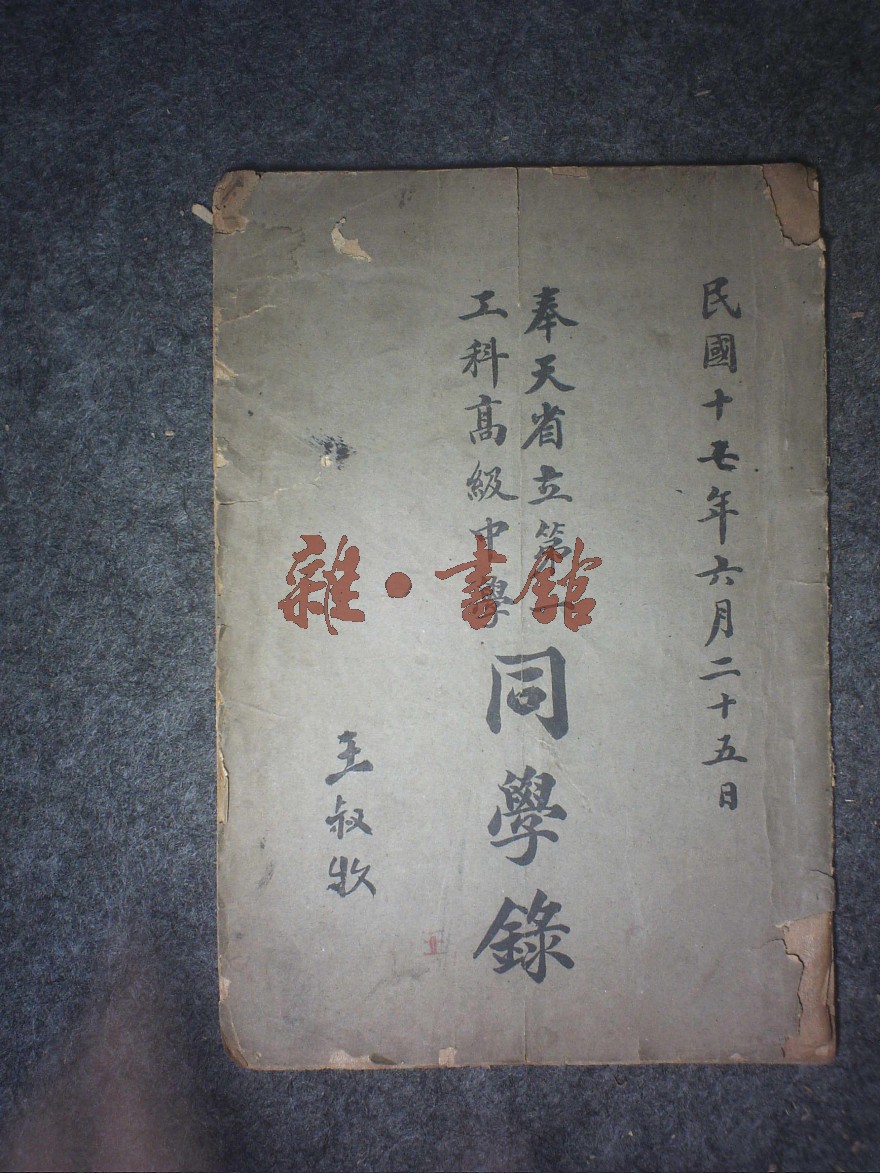 民國十七年六月二十五日
奉天省立第一
工科高級中學
同學錄
王叔牧
雜·書館